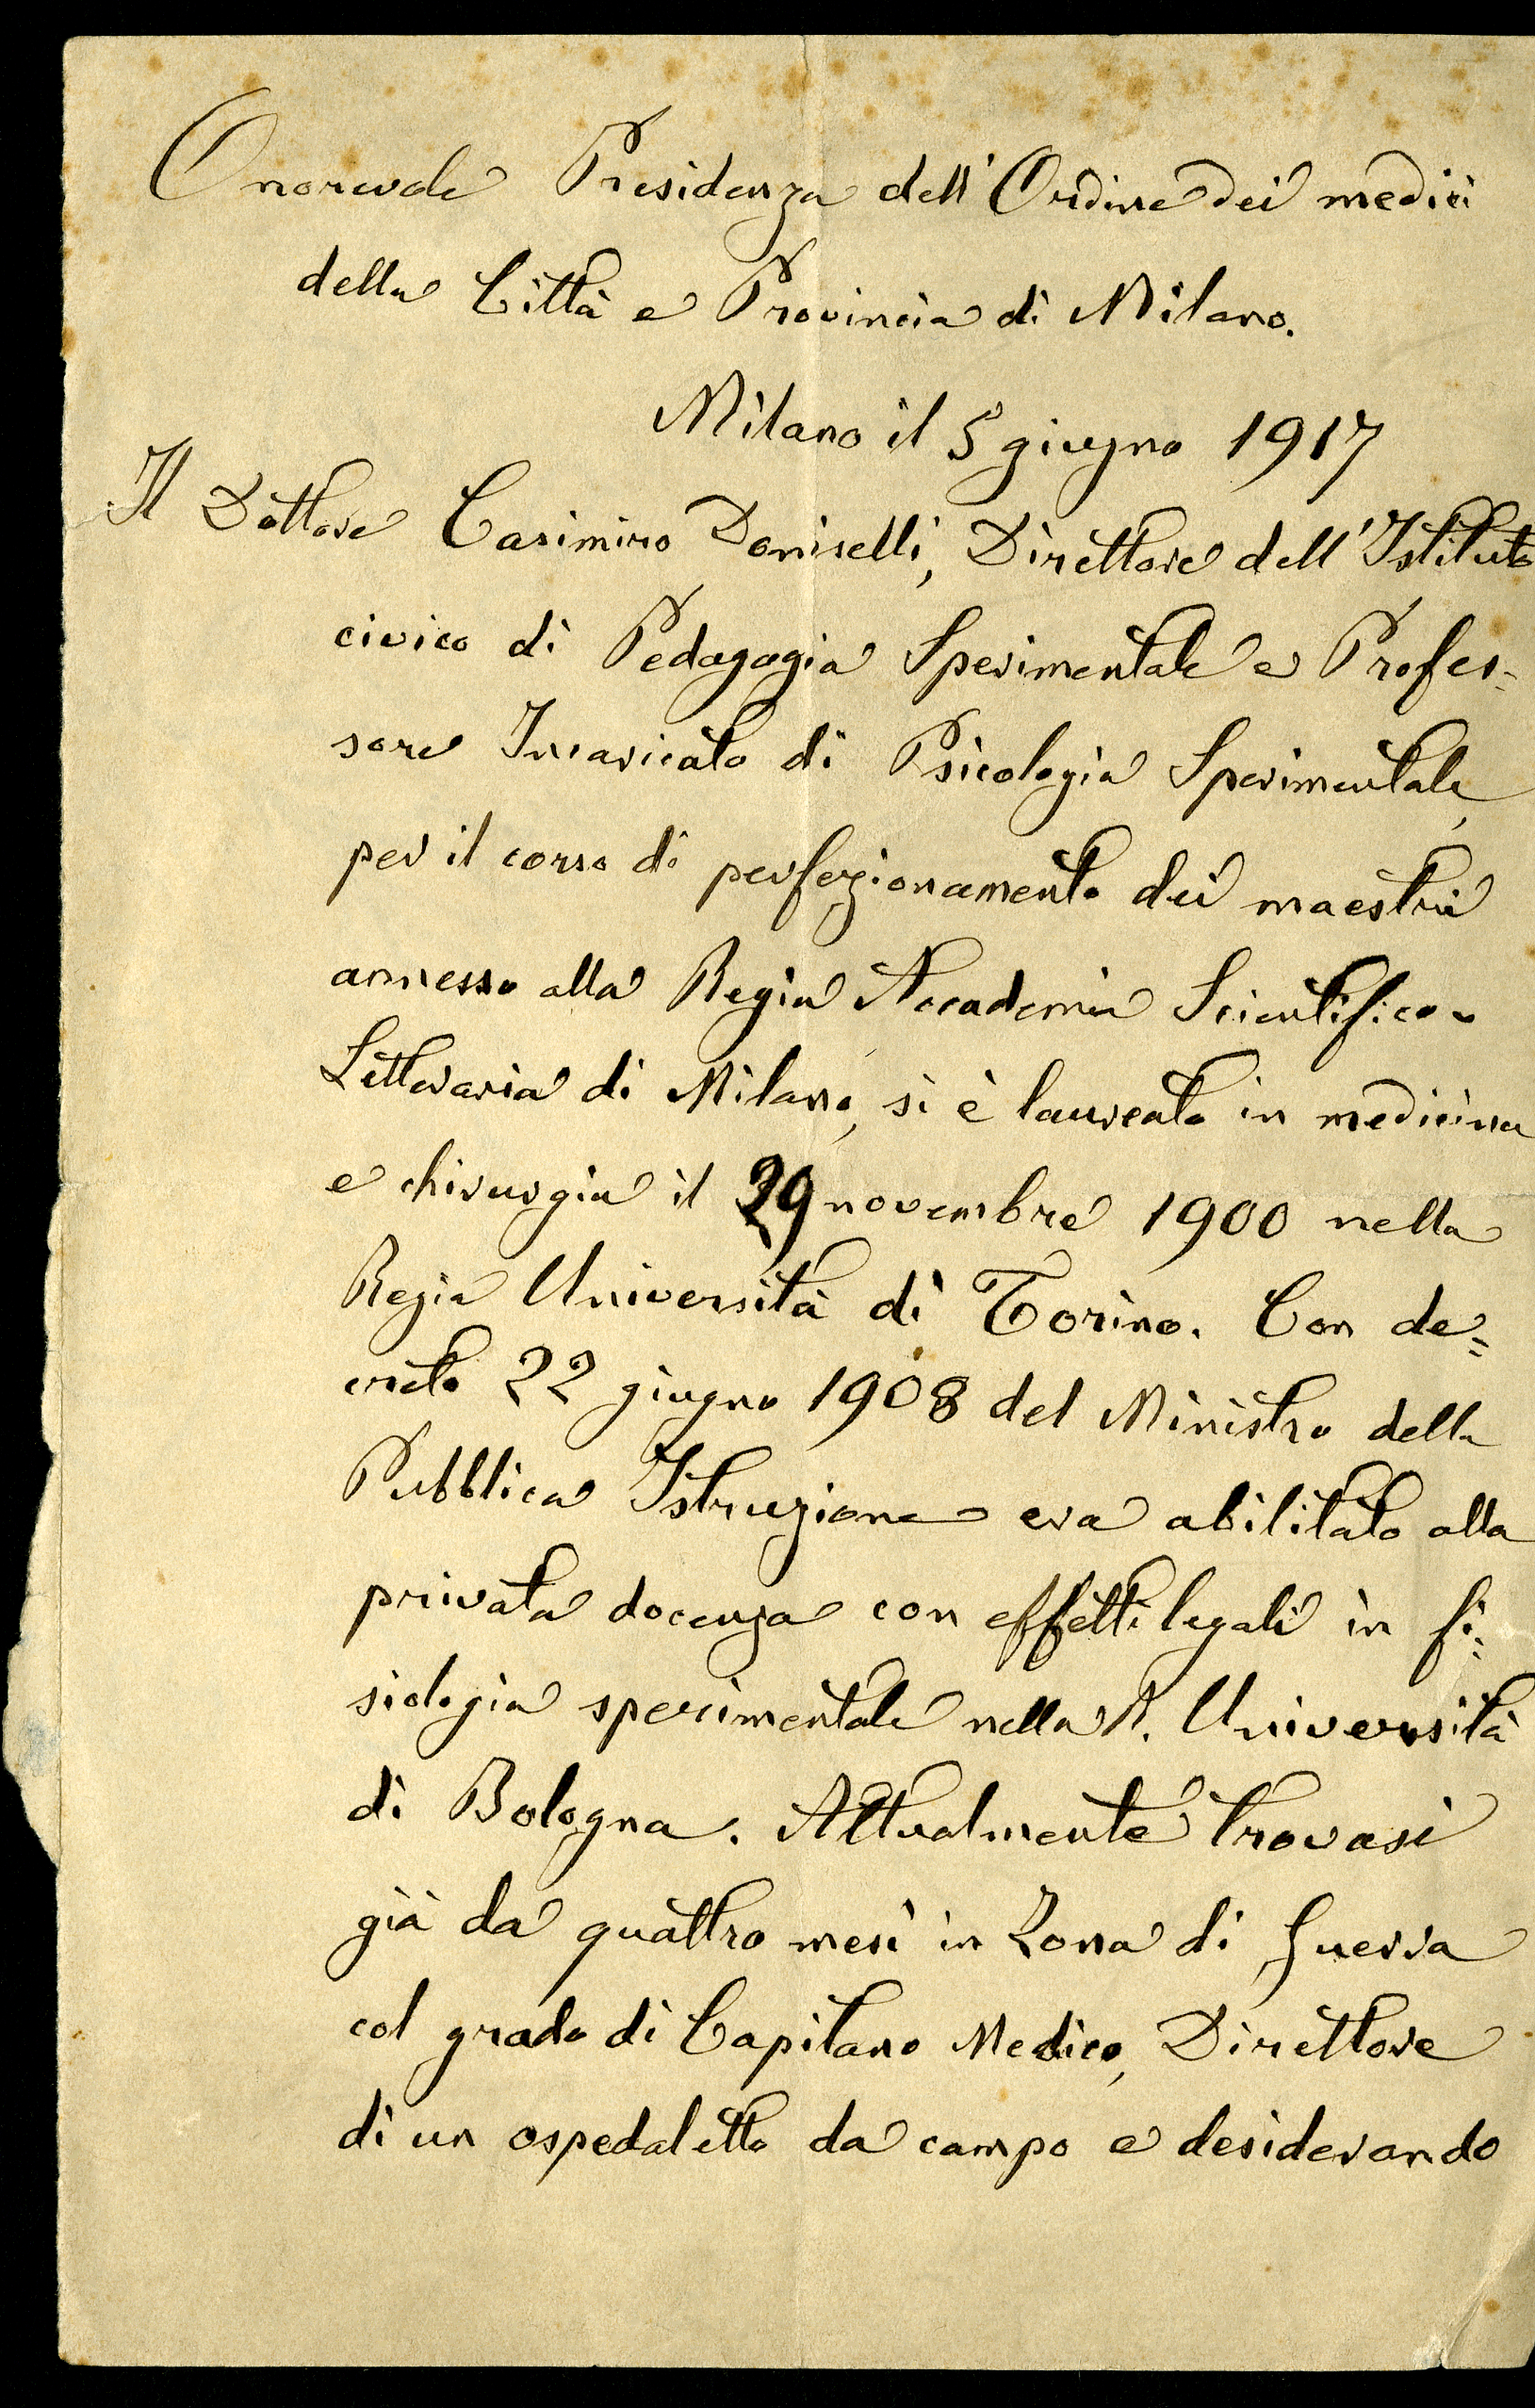 Onorevole Presidenza dell'Ordine dei medici
della Città e Provincia di Milano.
Milano il 5 giugno 1917
Il Dottore Casimiro Doniselli, Direttore dell'Istituto
civico di Pedagogia Sperimentale e Profes-
sore Incaricato di Psicologia Sperimentale,
per il corso di perfezionamento dei maestri
annesso alla Regia Accademia Scientifico-
Letteraria di Milano, si è laureato in medicina
e chirurgia il 29 novembre 1900 nella
Regia Università di Torino. Con de=
creto 22 giugno 1908 del Ministro della
Pubblica Istruzione era abilitato alla
privata docenza con effetti legali in fi=
siologia sperimentale nella R. Università
di Bologna. Attualmente trovasi
già da quattro mesi in Zona di Guerra
col grado di Capitano Medico, Direttore
di un ospedaletto da campo e desiderando